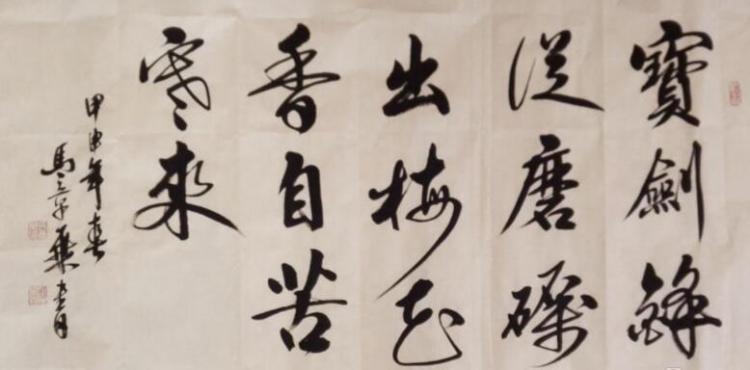 寶劍鋒
從磨礪
出梅花
香自苦
寒來
甲申年春
馬